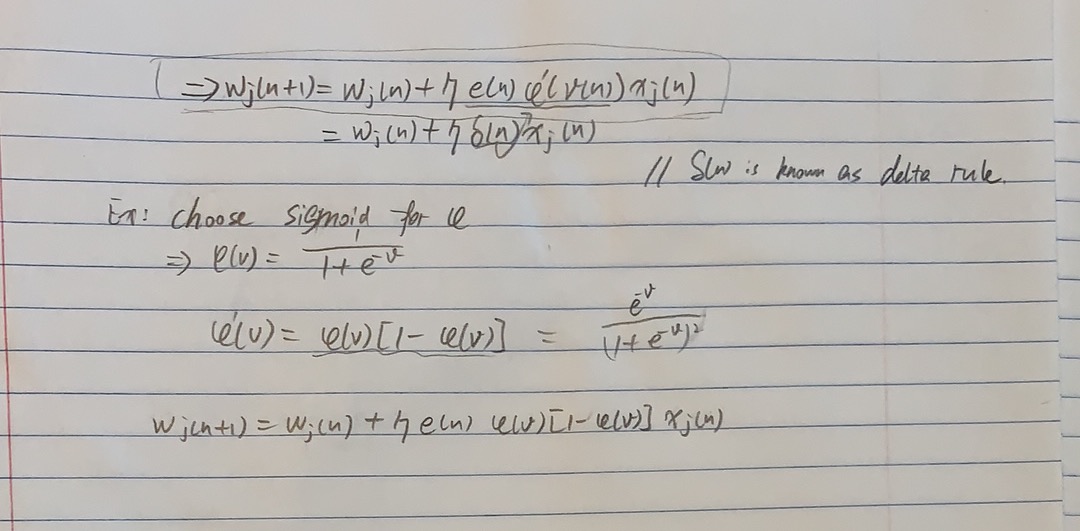 ⇒ wj(n+1) = wj(n) + η e(n) φ'(v(n)) xj(n)
= wj(n) + η δ(n) xj(n)
// δ(n) is known as delta rule.
Ex: choose sigmoid for φ
⇒ φ(v) = 1 / (1 + e^-v)
φ'(v) = φ(v)[1 - φ(v)] = e^-v / (1 + e^-v)²
wj(n+1) = wj(n) + η e(n) φ(v)[1 - φ(v)] xj(n)